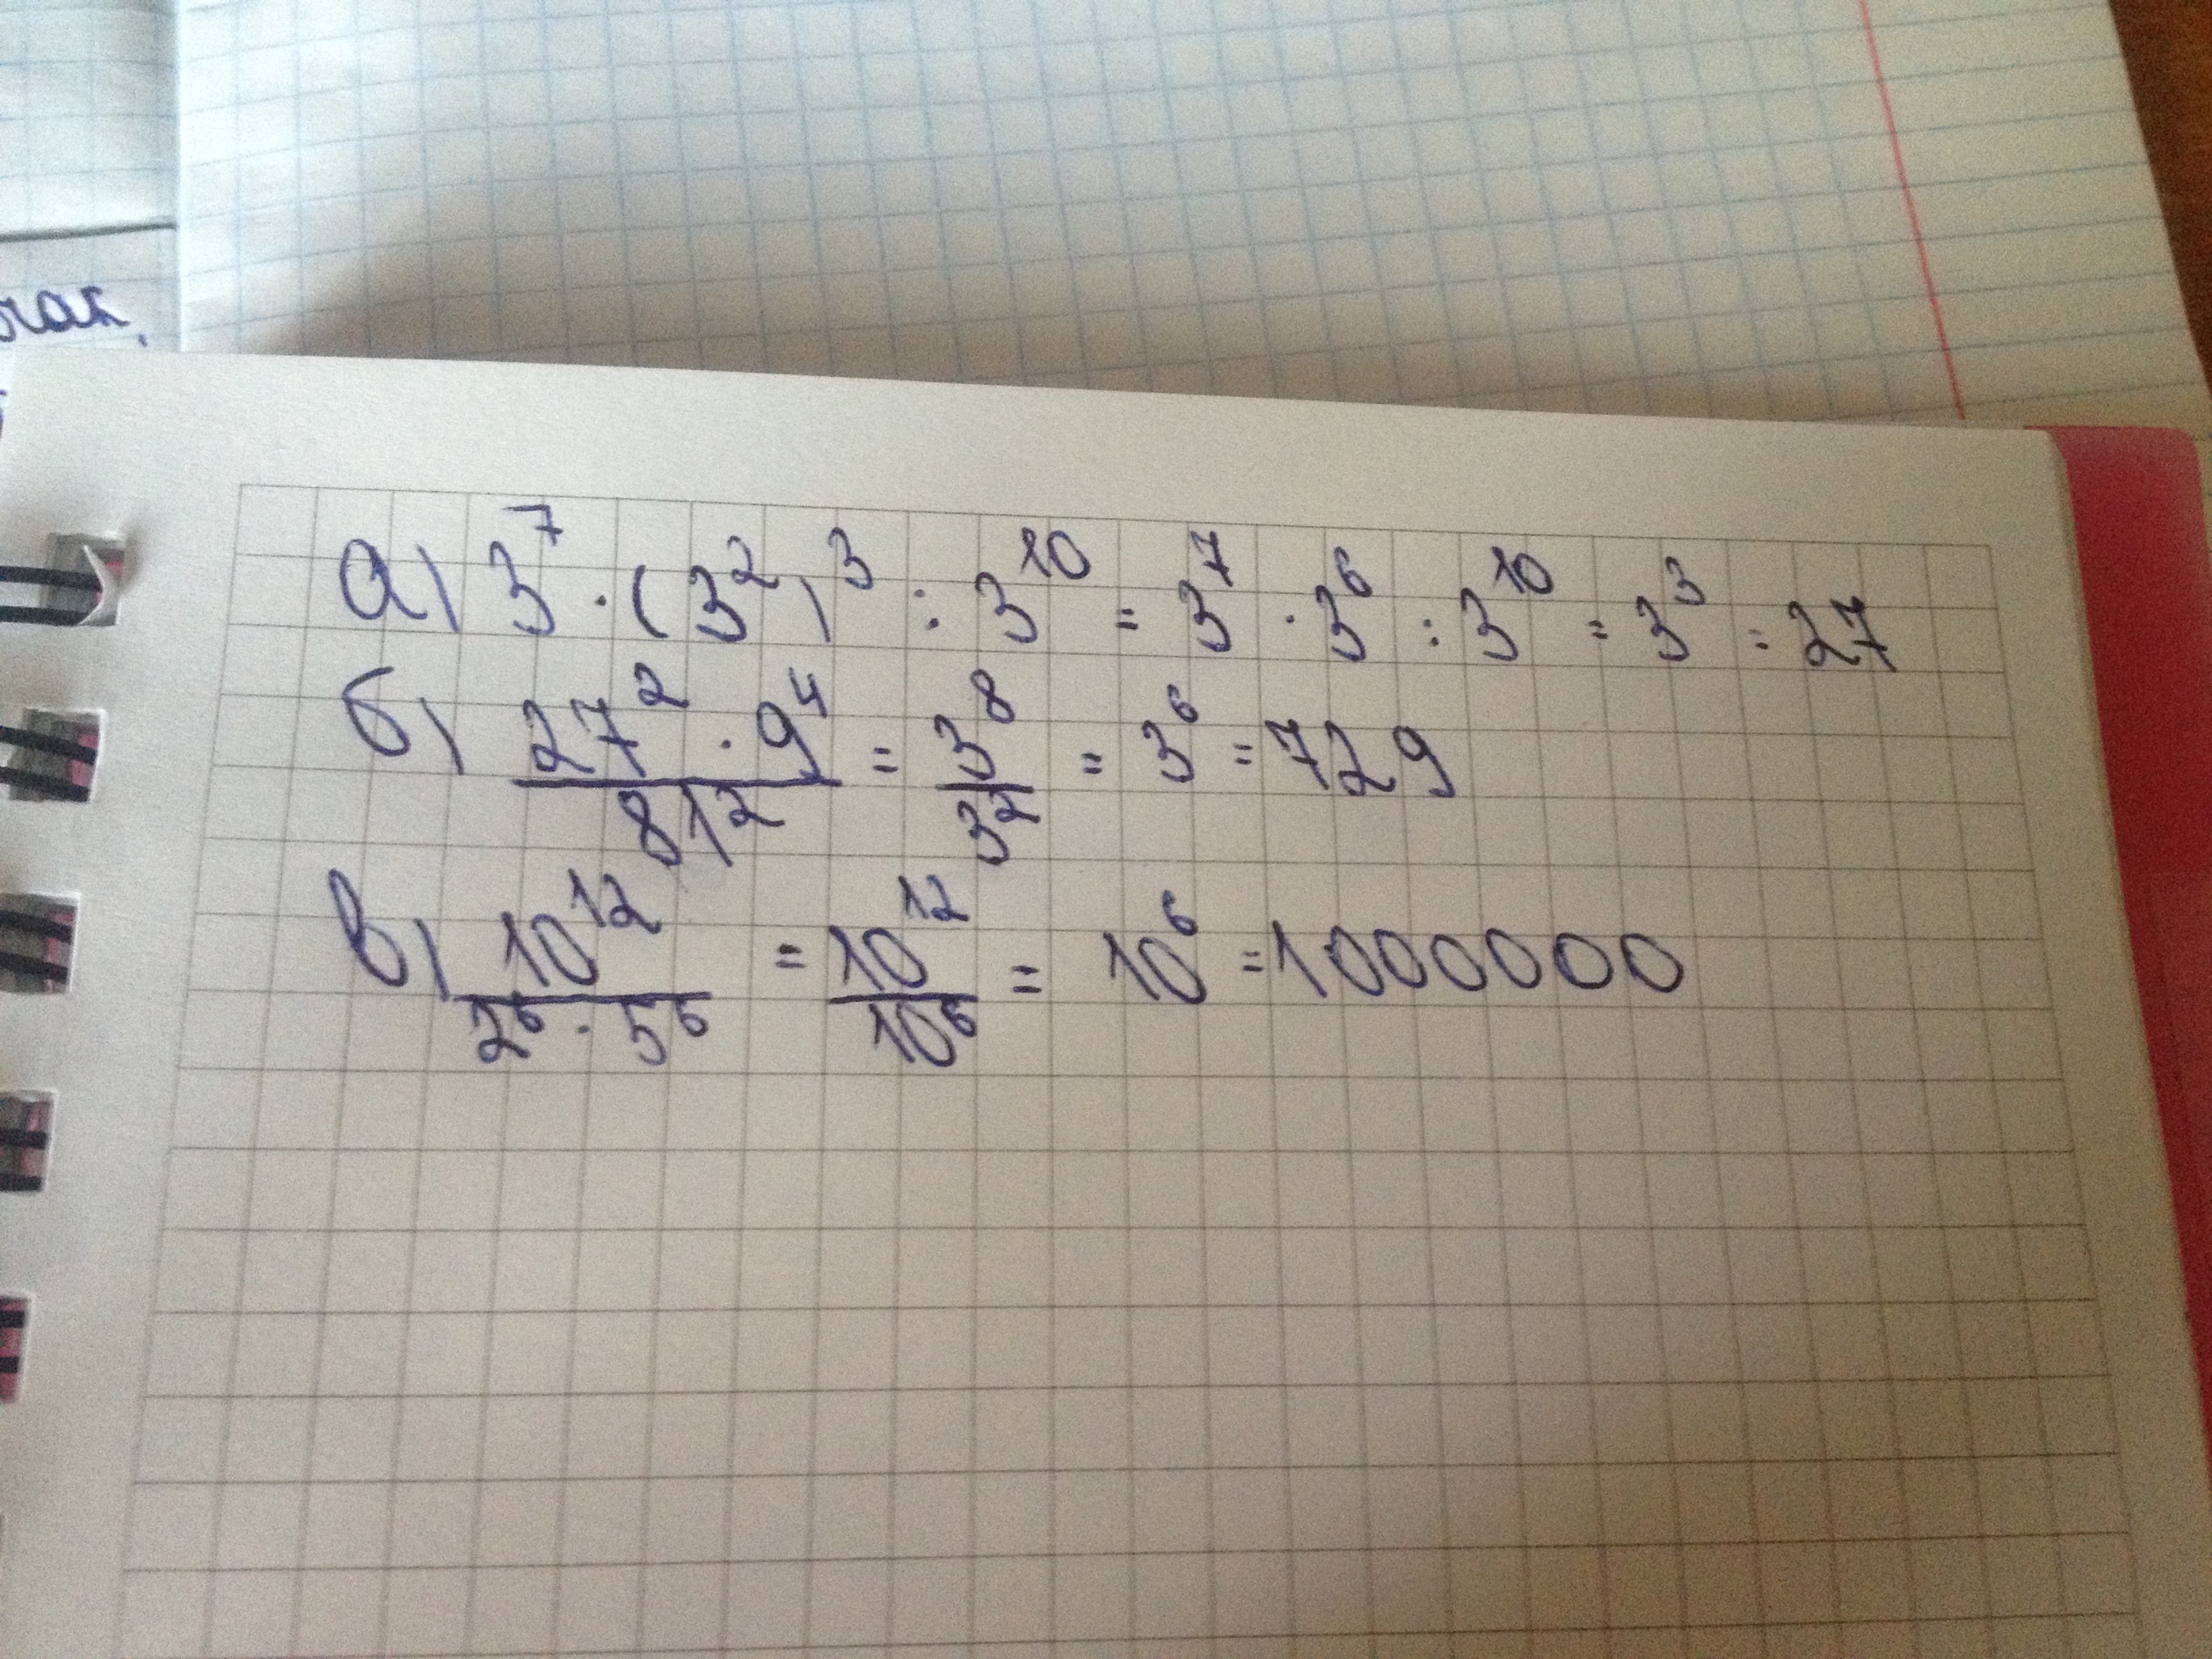 а) 3⁷ · (3²)³ : 3¹⁰ = 3⁷ · 3⁶ : 3¹⁰ = 3³ = 27
б) 27² · 9⁴ / 81² = 3⁸ / 3² = 3⁶ = 729
в) 10¹² / 2⁶ · 5⁶ = 10¹² / 10⁶ = 10⁶ = 1000000